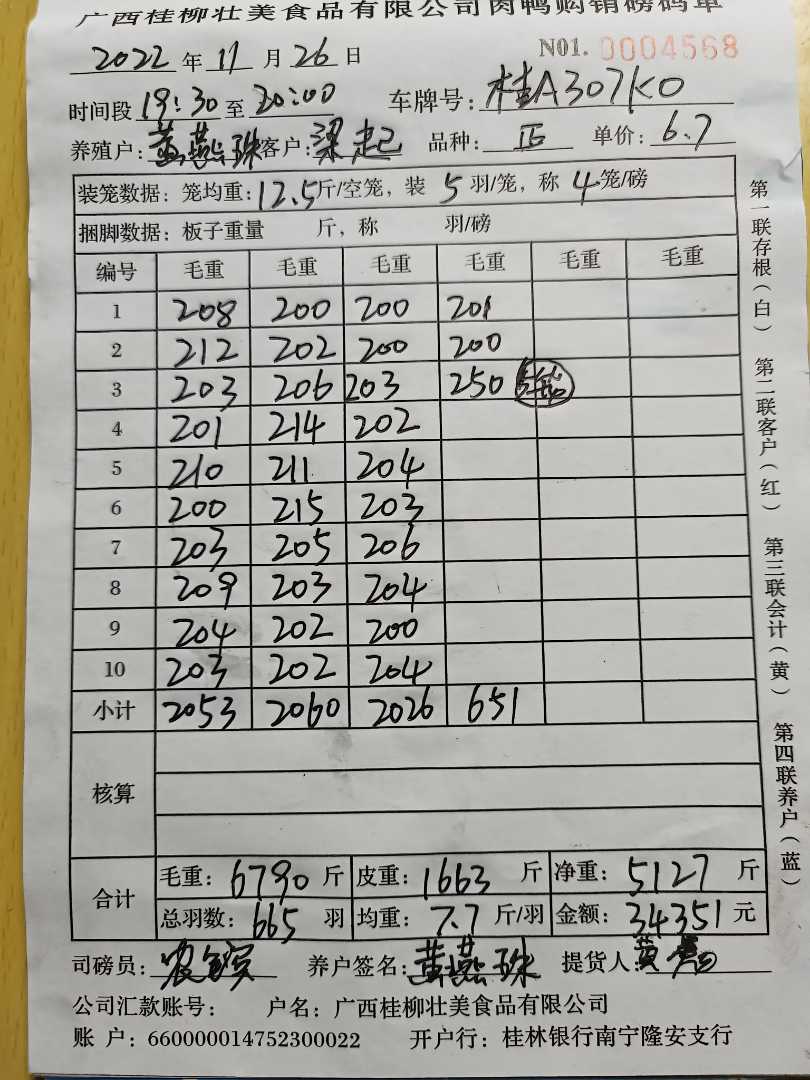 广西桂柳壮美食品有限公司肉鸭购销磅码单
2022 年 11 月 26 日 N01. 0004568
时间段 19:30 至 20:00 车牌号: 桂A307K0
养殖户: 黄燕珠 客户: 梁起 品种: 正 单价: 6.7
装笼数据: 笼均重: 12.5 斤/空笼, 装 5 羽/笼, 称 4 笼/磅
捆脚数据: 板子重量 斤, 称 羽/磅
编号 毛重 毛重 毛重 毛重 毛重 毛重
1 208 200 200 201
2 212 202 200 200
3 203 206 203 250
4 201 214 202
5 210 211 204
6 200 215 203
7 203 205 206
8 209 203 204
9 204 202 200
10 203 202 204
小计 2053 2060 2026 651
核算
合计 毛重: 6790 斤 皮重: 1663 斤 净重: 5127 斤
总羽数: 665 羽 均重: 7.7 斤/羽 金额: 34351 元
司磅员: 养户签名: 黄燕珠 提货人: 黄
公司汇款账号: 户名: 广西桂柳壮美食品有限公司
账 户: 660000014752300022 开户行: 桂林银行南宁隆安支行
第一联存根(白) 第二联客户(红) 第三联会计(黄) 第四联养户(蓝)